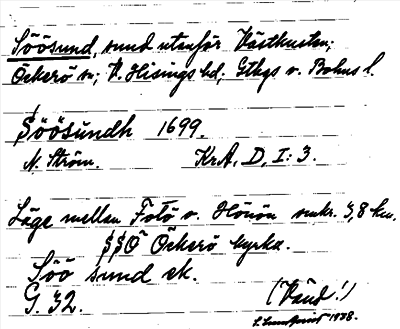 Söösund, sund utanför Västkusten;
Öckerö sn; V. Hisings hd; Gtbgs o. Bohus l.
Söösundh 1699.
N. Ström. KrA, D, I: 3.
Läge mellan Fotö o. Hönön omkr. 3,8 km.
SSÖ Öckerö kyrka.
Söö sund ek.
G. 32. (Vänd!)
1938.